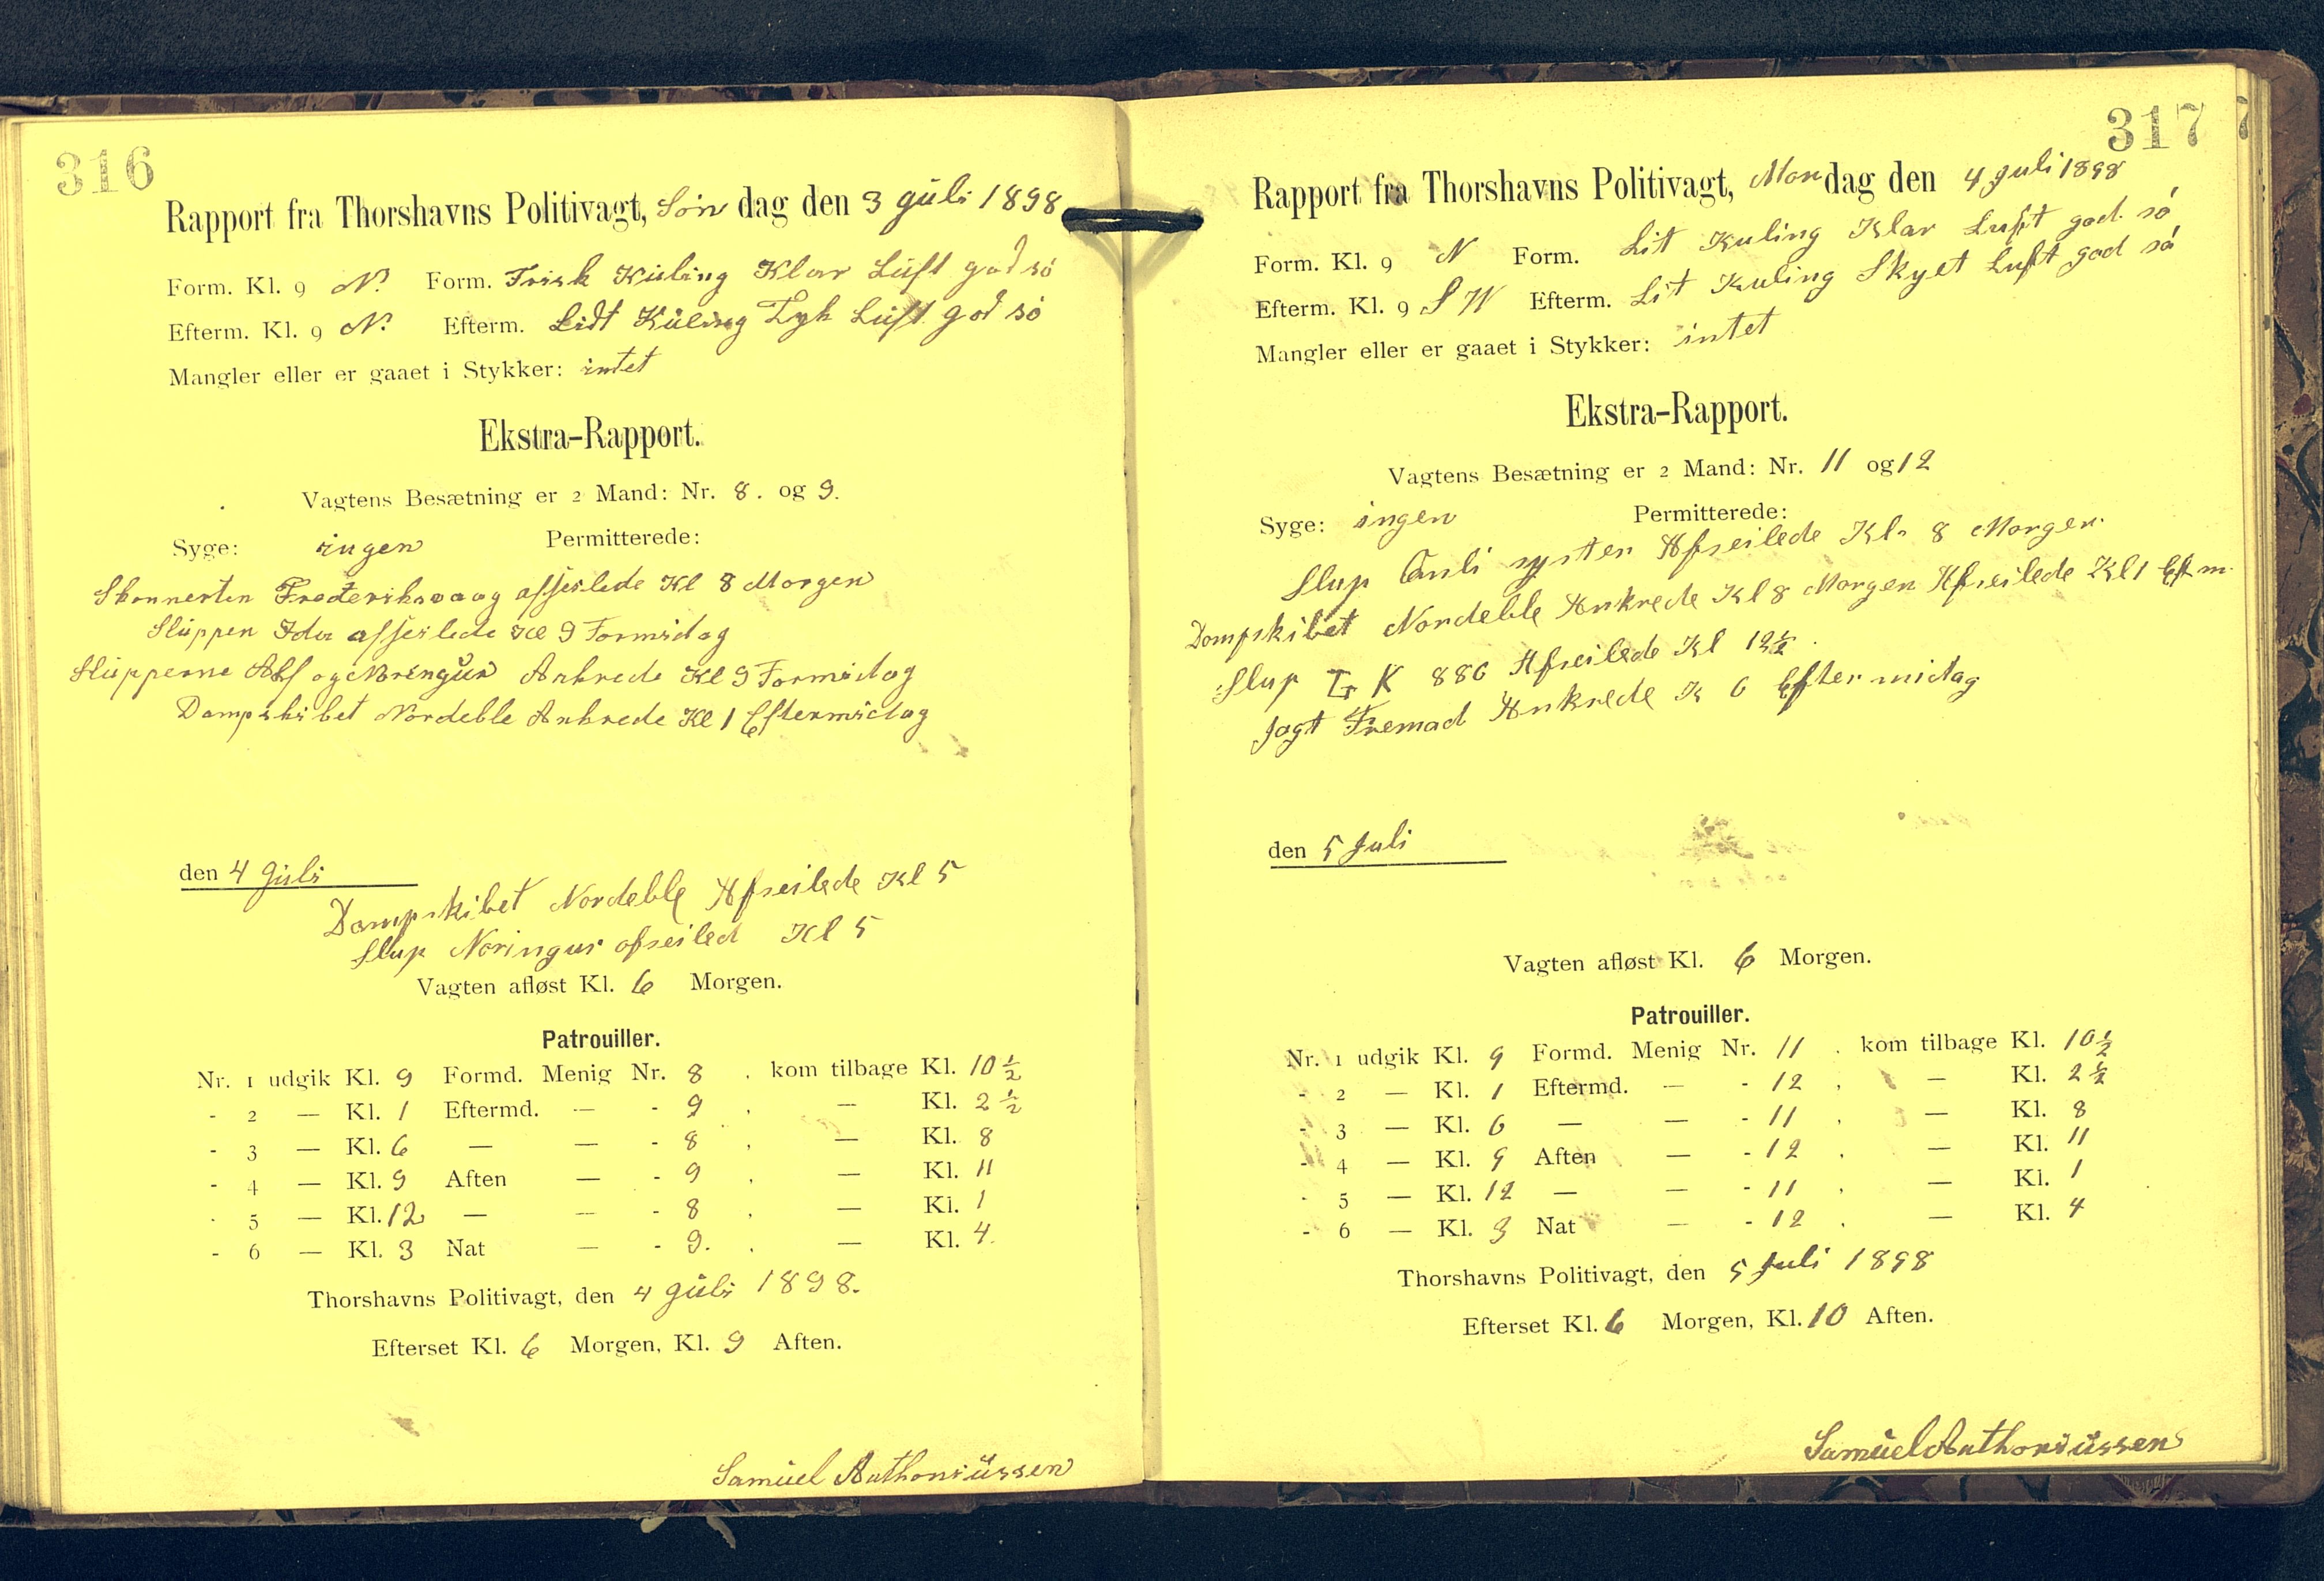 316
Rapport fra Thorshavns Politivagt, Søn dag den 3 Juli 1898
Form. Kl. 9 N. Form. Frisk Kuling Klar Luft god sö
Efterm. Kl. 9 N. Efterm. Lidt Kuling Tyk Luft god sö
Mangler eller er gaaet i Stykker: intet
Ekstra-Rapport.
Vagtens Besætning er 2 Mand: Nr. 8. og 9.
Syge: ingen Permitterede:
Skonnerten Frederiksvaag afseilede Kl 8 Morgen
Sluppen Ida afseilede Kl 9 Formidag
Slupperne og Ankrede Kl 9 Formidag
Dampskibet Nordeble Ankrede Kl 1 Eftermidag
den 4 Juli
Dampskibet Nordeble Afseilede Kl 5
Slup Noringur afseiled Kl 5
Vagten afløst Kl. 6 Morgen.
Patrouiller.
Nr. 1 udgik Kl. 9 Formd. Menig Nr. 8 . kom tilbage Kl. 10 ½
- 2 — Kl. 1 Eftermd. — - 9 . — Kl. 2 ½
- 3 — Kl. 6 — — - 8 . — Kl. 8
- 4 — Kl. 9 Aften — - 9 . — Kl. 11
- 5 — Kl. 12 — — - 8 . — Kl. 1
- 6 — Kl. 3 Nat — - 9. . — Kl. 4.
Thorshavns Politivagt, den 4 Juli 1898.
Efterset Kl. 6 Morgen, Kl. 9 Aften.
Samuel Anthoniussen
317
Rapport fra Thorshavns Politivagt, Mon dag den 4 Juli 1898
Form. Kl. 9 N Form. Lit Kuling Klar Luft god sö
Efterm. Kl. 9 S W Efterm. Lit Kuling Skyet Luft god sö
Mangler eller er gaaet i Stykker: intet
Ekstra-Rapport.
Vagtens Besætning er 2 Mand: Nr. 11 og 12
Syge: ingen Permitterede:
Slup syster Afseilede Kl. 8 Morgen.
Dampskibet Nordeble Ankrede Kl 8 Morgen Afseilede Kl 1 Eftm.
Slup K 886 Afseilede Kl 12½.
Jagt Fremad Ankrede K 6 Eftermidag
den 5 Juli
Vagten afløst Kl. 6 Morgen.
Patrouiller.
Nr. 1 udgik Kl. 9 Formd. Menig Nr. 11 . kom tilbage Kl. 10½
- 2 — Kl. 1 Eftermd. — - 12 . — Kl. 2½
- 3 — Kl. 6 — — - 11 . — Kl. 8
- 4 — Kl. 9 Aften — - 12 . — Kl. 11
- 5 — Kl. 12 — — - 11 . — Kl. 1
- 6 — Kl. 3 Nat — - 12 . — Kl. 4
Thorshavns Politivagt, den 5 Juli 1898
Efterset Kl. 6 Morgen, Kl. 10 Aften.
Samuel Anthoniussen